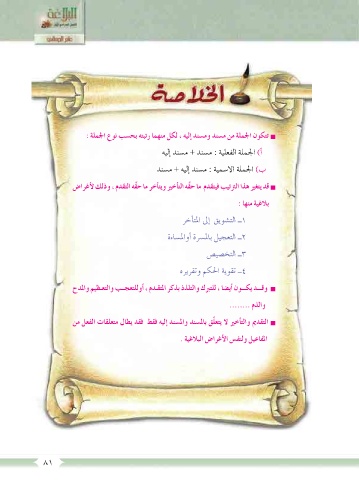 البلاغة
علم المعاني
الخلاصة
تتكون الجملة من مسند ومسند إليه ، لكل منهما رتبته بحسب نوع الجملة :
أ) الجملة الفعلية : مسند + مسند إليه
ب) الجملة الاسمية : مسند إليه + مسند
قد يتغير هذا الترتيب فيتقدم ما حقّه التأخير ويتأخر ما حقّه التقدم ، وذلك لأغراض
بلاغية منها :
١ـ التشويق إلى المتأخر
٢ـ التعجيل بالمسرة أو المساءة
٣ـ التخصيص
٤ـ تقوية الحكم وتقريره
وقــد يكــون أيضا ، للتبرك والتلذذ بذكر المتقـدم ، أو للتعجـب والتعـظيم والمدح
والذم ........
التقديم والتأخير لا يتعلّق بالمسند والمسند إليه فقط فقد يطال متعلقات الفعل من
المفاعيل ولنفس الأغراض البلاغية .
٨١